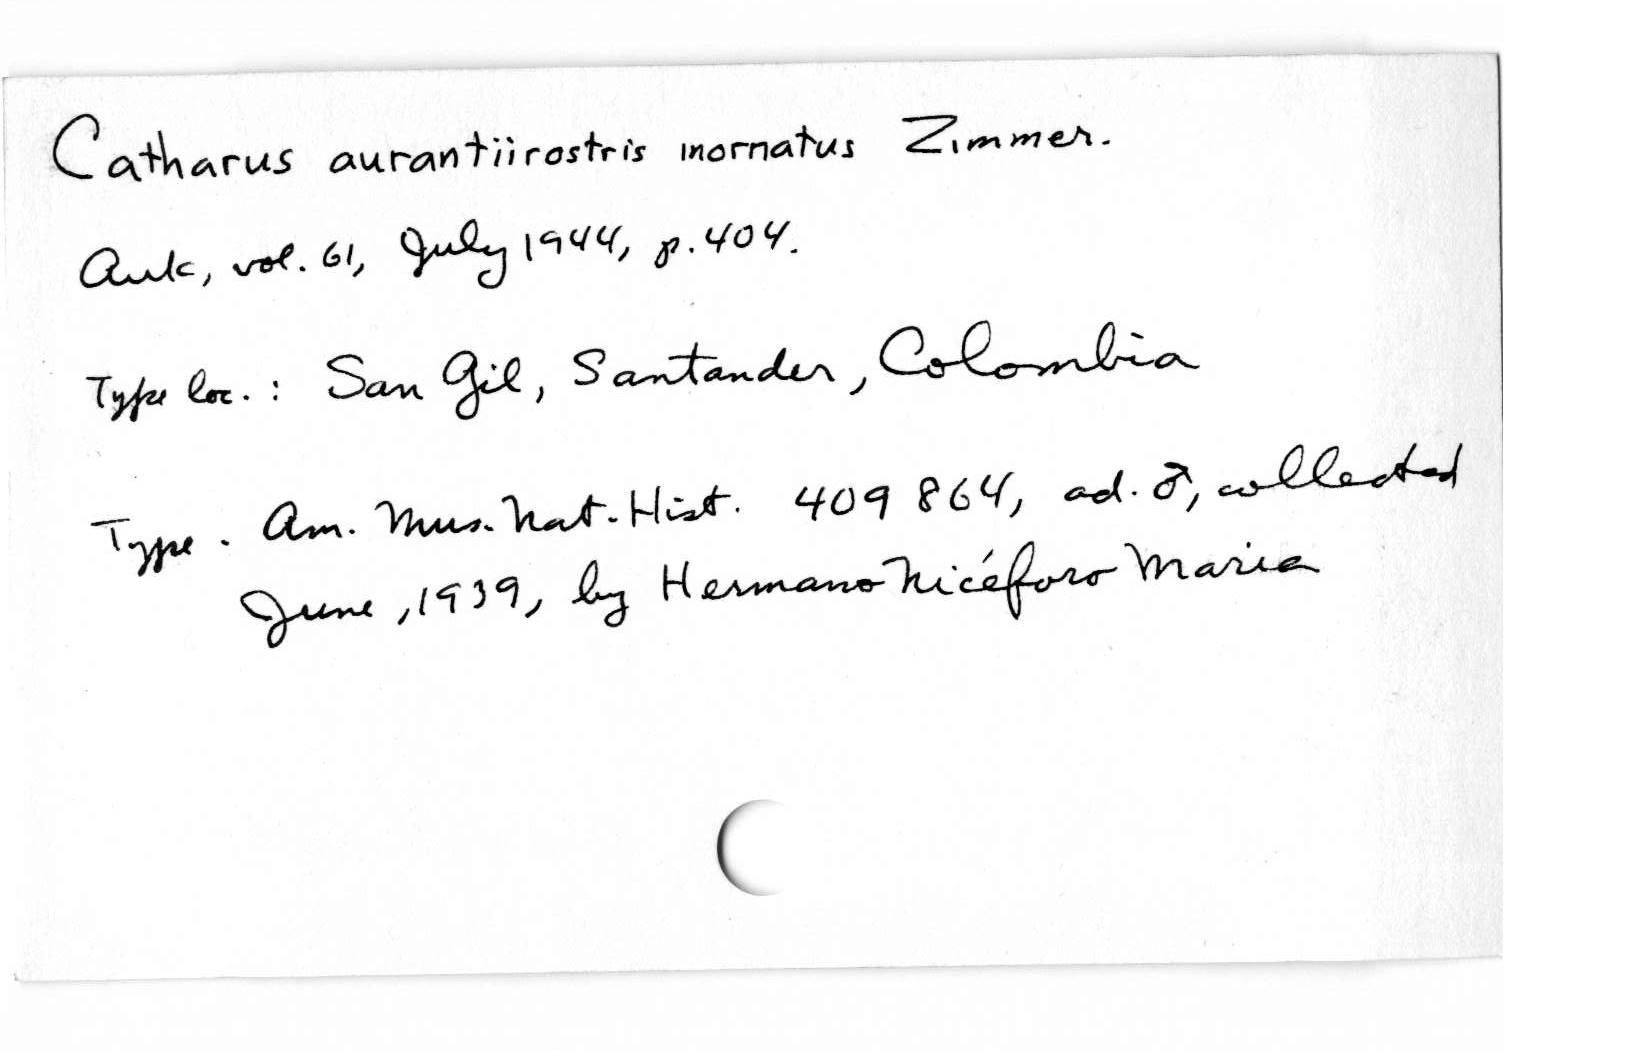 Catharus aurantiirostris inornatus Zimmer.
Auk, vol. 61, July 1944, p. 404.
Type loc. : San Gil, Santander, Colombia
Type. Am. Mus. Nat. Hist. 409 864, ad. ♂, collected
June, 1939, by Hermano Nicéforo Maria